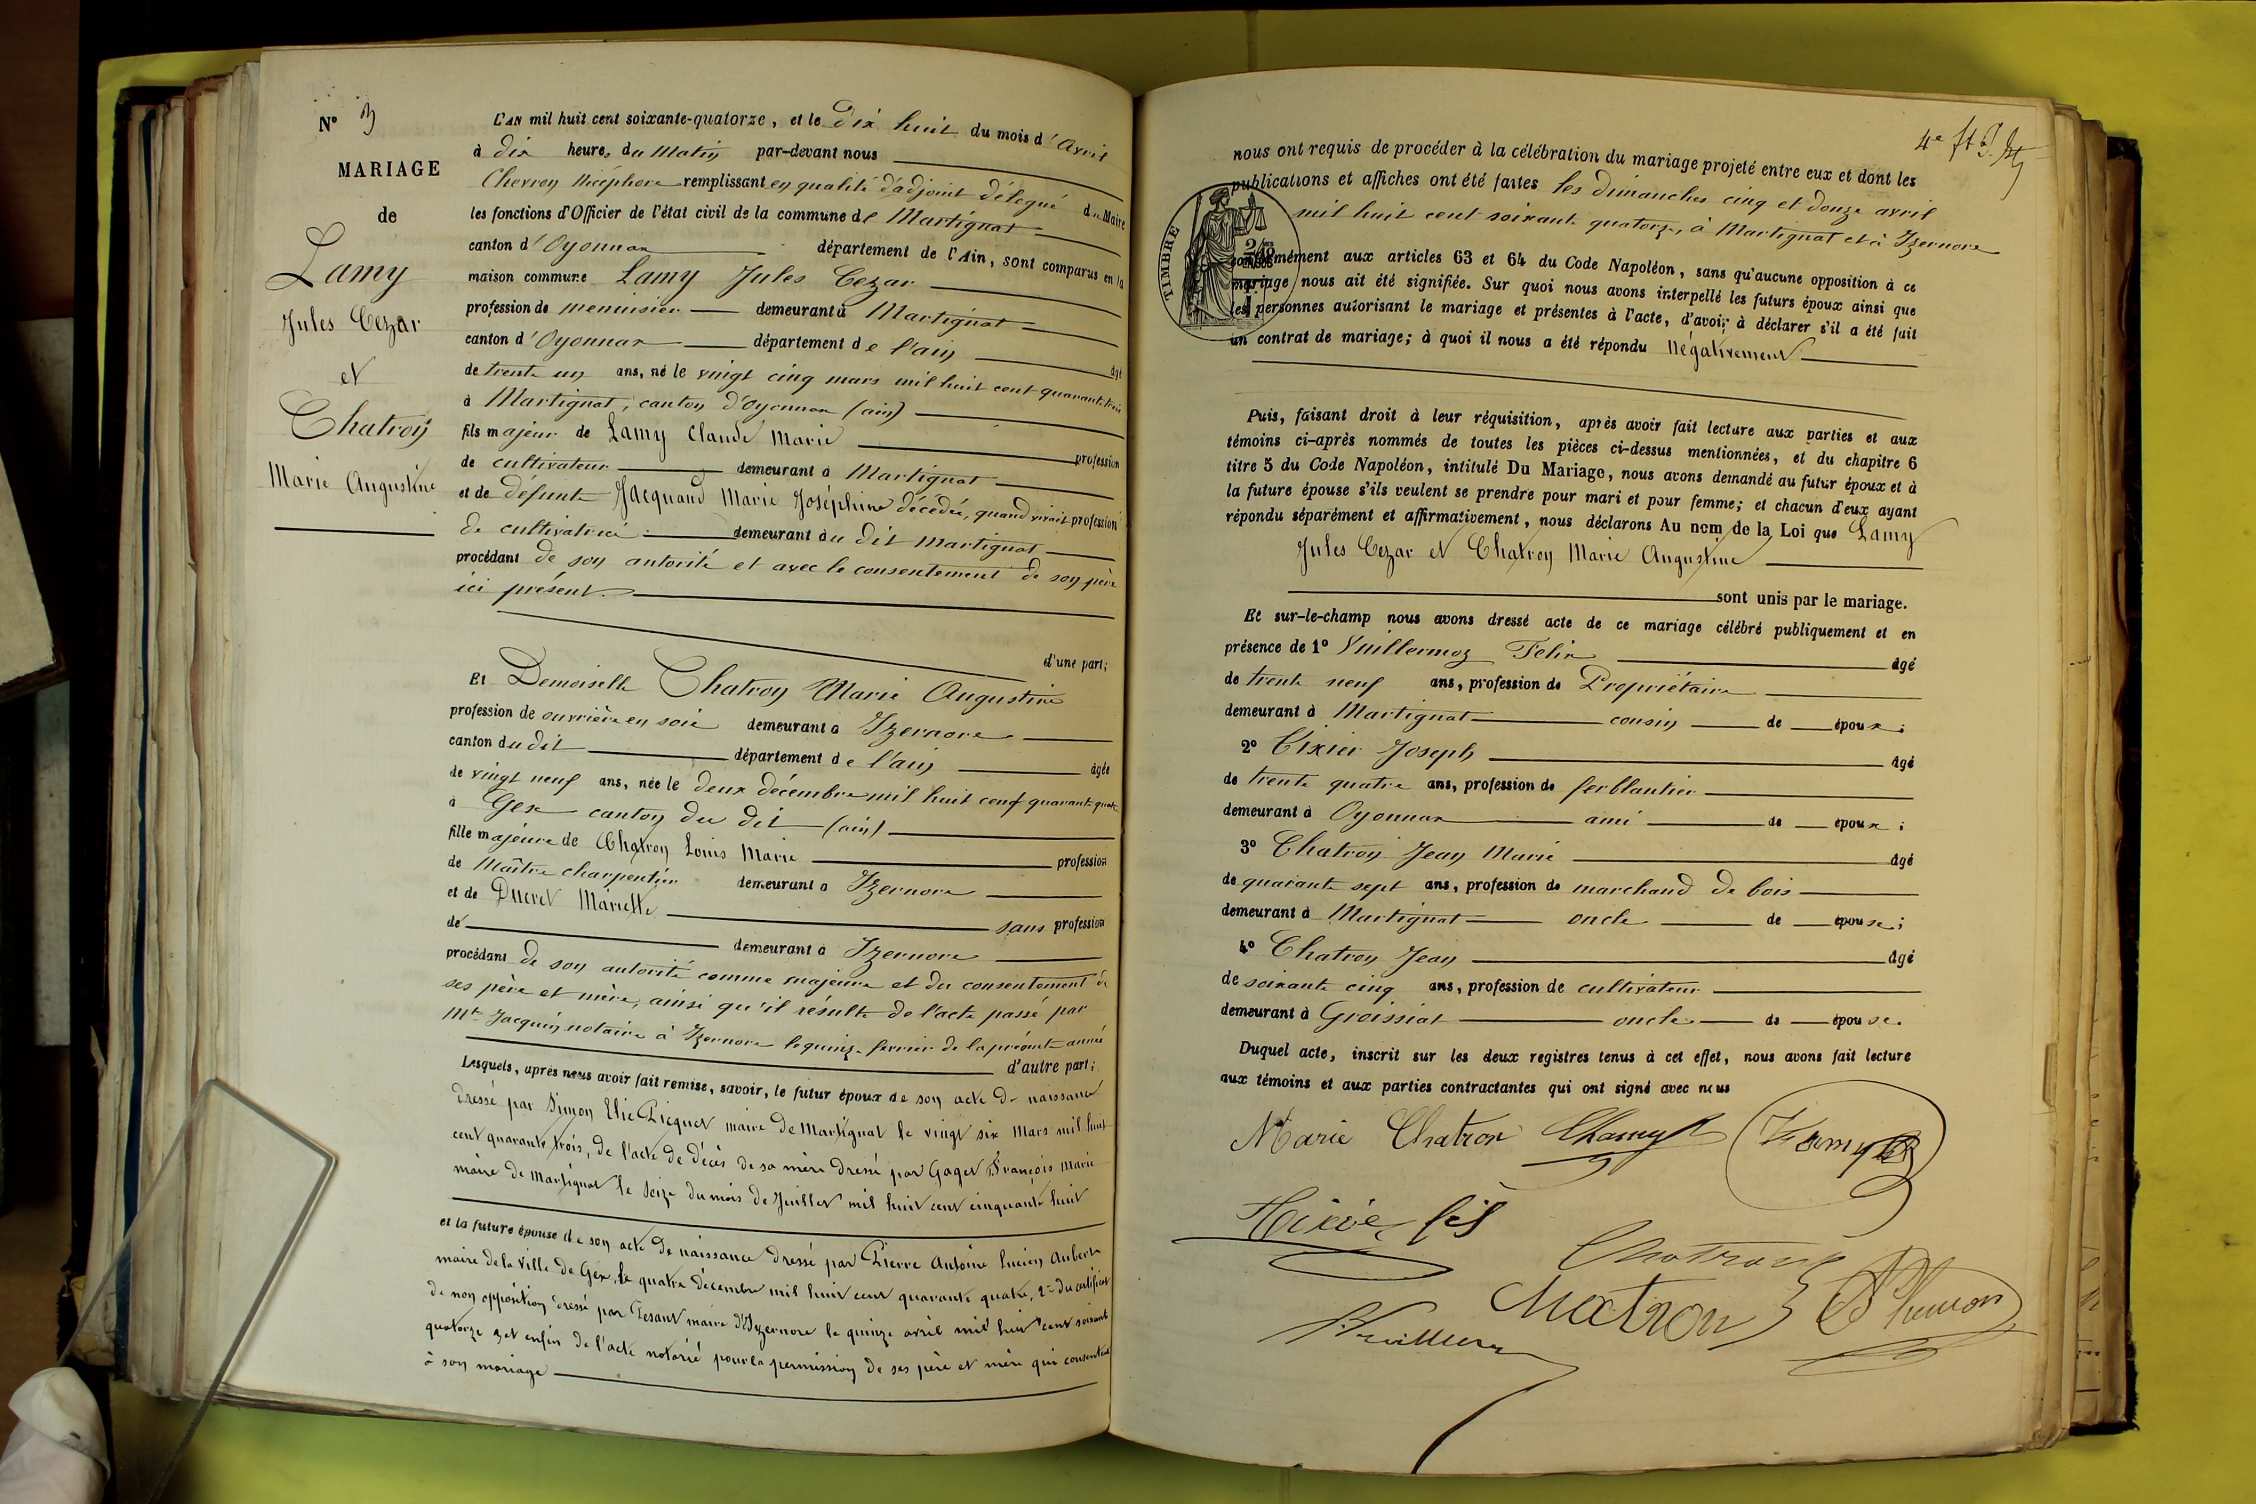 N° 3
MARIAGE
de
Lamy
Jules Cezar
et
Chatron
Marie Augustine
L'AN mil huit cent soixante-quatorze, et le dix huit du mois d'Avril
à dix heures du Matin par-devant nous
Chevron Nicéphore remplissant en qualité d'adjoint délégué du Maire
les fonctions d'Officier de l'état civil de la commune de Martignat
canton d'Oyonnax département de l'Ain, sont comparus en la
maison commune Lamy Jules Cezar
profession de menuisier demeurant à Martignat
canton d'Oyonnax département de l'ain âgé
de trente un ans, né le vingt cinq mars mil huit cent quarante trois
à Martignat, canton d'Oyonnax (ain)
fils majeur de Lamy Claude Marie profession
de cultivateur demeurant à Martignat
et de défunte Jacquand Marie Joséphine décédée, quand vivait profession
de cultivatrice demeurant au dit Martignat
procédant de son autorité et avec le consentement de son père
ici présent.
d'une part;
Et Demoiselle Chatron Marie Augustine
profession de ouvrière en soie demeurant à Izernore
canton du dit département de l'ain âgée
de vingt neuf ans, née le deux décembre mil huit cent quarante quatre
à Gex canton du dit (ain)
fille majeure de Chatron Louis Marie profession
de Maître charpentier demeurant à Izernore
et de Ducret Mariette sans profession
de demeurant à Izernore
procédant de son autorité comme majeure et du consentement de
ses père et mère, ainsi qu'il résulte de l'acte passé par
Mtre Jacquin notaire à Izernore le quinze fevrier de la présente année
d'autre part;
Lesquels, après nous avoir fait remise, savoir, le futur époux de son acte de naissance
dressé par Simon Elie Picquet maire de Martignat le vingt six Mars mil huit
cent quarante trois, de l'acte de décès de sa mère dressé par Goget François Marie
maire de Martignat le seize du mois de Juillet mil huit cent cinquante huit
et la future épouse de son acte de naissance dressé par Pierre Antoine Lucien Aubert
maire de la ville de Gex, le quatre décembre mil huit cent quarante quatre, 2° du certificat
de non opposition dressé par maire d'Izernore le quinze avril mil huit cent soixante
quatorze et enfin de l'acte notarié pour la permission de ses père et mère qui consentent
à son mariage
4e
nous ont requis de procéder à la célébration du mariage projeté entre eux et dont les
publications et affiches ont été faites les dimanches cinq et douze avril
mil huit cent soixante quatorze, à Martignat et à Izernore
TIMBRE
conformément aux articles 63 et 64 du Code Napoléon, sans qu'aucune opposition à ce
mariage nous ait été signifiée. Sur quoi nous avons interpellé les futurs époux ainsi que
les personnes autorisant le mariage et présentes à l'acte, d'avoir à déclarer s'il a été fait
un contrat de mariage; à quoi il nous a été répondu négativement
Puis, faisant droit à leur réquisition, après avoir fait lecture aux parties et aux
témoins ci-après nommés de toutes les pièces ci-dessus mentionnées, et du chapitre 6
titre 5 du Code Napoléon, intitulé Du Mariage, nous avons demandé au futur époux et à
la future épouse s'ils veulent se prendre pour mari et pour femme; et chacun d'eux ayant
répondu séparément et affirmativement, nous déclarons Au nom de la Loi que Lamy
Jules Cezar et Chatron Marie Augustine
sont unis par le mariage.
Et sur-le-champ nous avons dressé acte de ce mariage célébré publiquement et en
présence de 1° Vuillermoz Felix âgé
de trente neuf ans, profession de Propriétaire
demeurant à Martignat cousin de époux;
2° Tixier Joseph âgé
de trente quatre ans, profession de ferblantier
demeurant à Oyonnax ami de époux;
3° Chatron Jean Marie âgé
de quarante sept ans, profession de marchand de bois
demeurant à Martignat oncle de épouse;
4° Chatron Jean âgé
de soixante cinq ans, profession de cultivateur
demeurant à Groissiat oncle de épouse.
Duquel acte, inscrit sur les deux registres tenus à cet effet, nous avons fait lecture
aux témoins et aux parties contractantes qui ont signé avec nous
Marie Chatron
fils
Chatron
Chatron